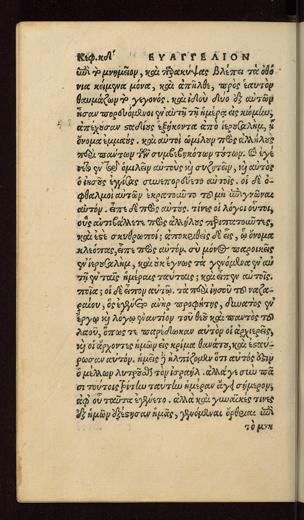 Κεφ. κδ΄ ΕΥΑΓΓΕΛΙΟΝ
ἐπὶ τὸ μνημεῖον, καὶ παρακύψας βλέπει τὰ ὀθό
νια κείμενα μόνα, καὶ ἀπῆλθε, πρὸς ἑαυτὸν
θαυμάζων τὸ γεγονός. καὶ ἰδοὺ δύο ἐξ αὐτῶν
ἦσαν πορευόμενοι ἐν αὐτῇ τῇ ἡμέρᾳ εἰς κώμην,
ἀπέχουσαν σταδίους ἑξήκοντα ἀπὸ ἱερουσαλήμ, ᾗ
ὄνομα ἐμμαούς. καὶ αὐτοὶ ὡμίλουν πρὸς ἀλλήλους
περὶ πάντων τῶν συμβεβηκότων τούτων. καὶ ἐγέ
νετο ἐν τῷ ὁμιλεῖν αὐτοὺς καὶ συζητεῖν, καὶ αὐτὸς
ὁ ἰησοῦς ἐγγίσας συνεπορεύετο αὐτοῖς. οἱ δὲ ὀ
φθαλμοὶ αὐτῶν ἐκρατοῦντο τοῦ μὴ ἐπιγνῶναι
αὐτόν. εἶπε δὲ πρὸς αὐτούς. τίνες οἱ λόγοι οὗτοι,
οὓς ἀντιβάλλετε πρὸς ἀλλήλους περιπατοῦντες,
καὶ ἐστε σκυθρωποί; ἀποκριθεὶς δὲ εἷς, ᾧ ὄνομα
κλεόπας, εἶπε πρὸς αὐτόν. σὺ μόνος παροικεῖς
ἐν ἱερουσαλήμ, καὶ οὐκ ἔγνως τὰ γενόμενα ἐν αὐ
τῇ ἐν ταῖς ἡμέραις ταύταις; καὶ εἶπεν αὐτοῖς.
ποῖα; οἱ δὲ εἶπον αὐτῷ. τὰ περὶ ἰησοῦ τοῦ ναζω
ραίου, ὃς ἐγένετο ἀνὴρ προφήτης, δυνατὸς ἐν
ἔργῳ καὶ λόγῳ ἐναντίον τοῦ θεοῦ καὶ παντὸς τοῦ
λαοῦ, ὅπως τε παρέδωκαν αὐτὸν οἱ ἀρχιερεῖς,
καὶ οἱ ἄρχοντες ἡμῶν εἰς κρίμα θανάτου, καὶ ἐσταύ
ρωσαν αὐτόν. ἡμεῖς δὲ ἠλπίζομεν ὅτι αὐτός ἐστιν
ὁ μέλλων λυτροῦσθαι τὸν ἰσραήλ. ἀλλά γε σὺν πᾶ
σι τούτοις τρίτην ταύτην ἡμέραν ἄγει σήμερον,
ἀφ' οὗ ταῦτα ἐγένετο. ἀλλὰ καὶ γυναῖκές τινες
ἐξ ἡμῶν ἐξέστησαν ἡμᾶς, γενόμεναι ὄρθριαι ἐπὶ
τὸ μνη